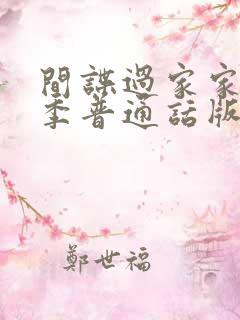 間諜過家家
季普通話版
鄭世福